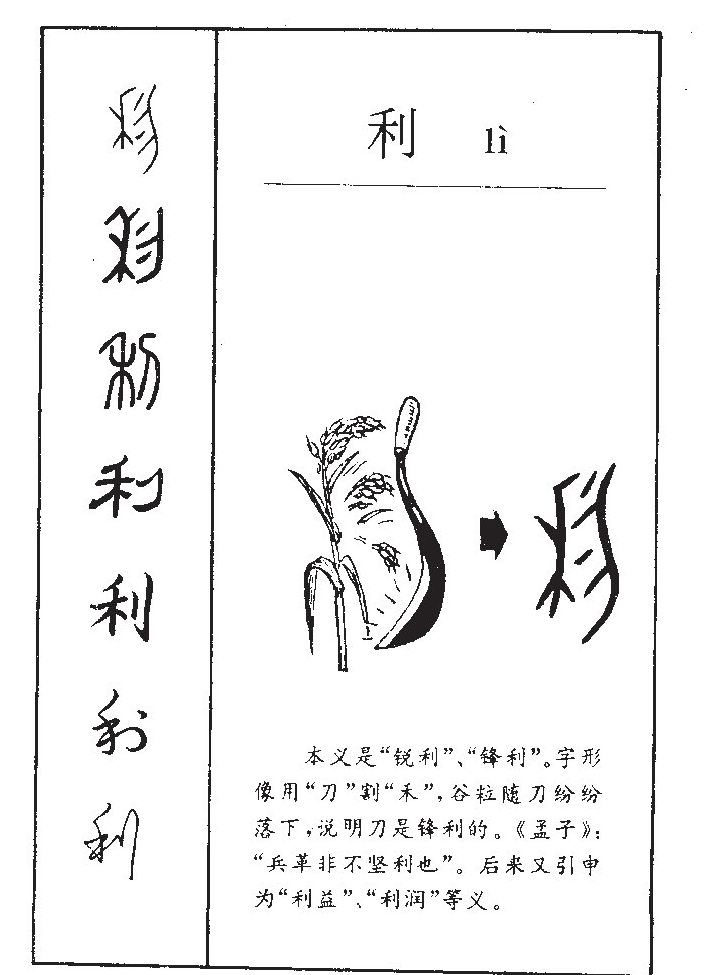 利 lì
本义是“锐利”、“锋利”。字形
像用“刀”割“禾”，谷粒随刀纷纷
落下，说明刀是锋利的。《孟子》：
“兵革非不坚利也”。后来又引申
为“利益”、“利润”等义。
利
利
利
利
利
利
利